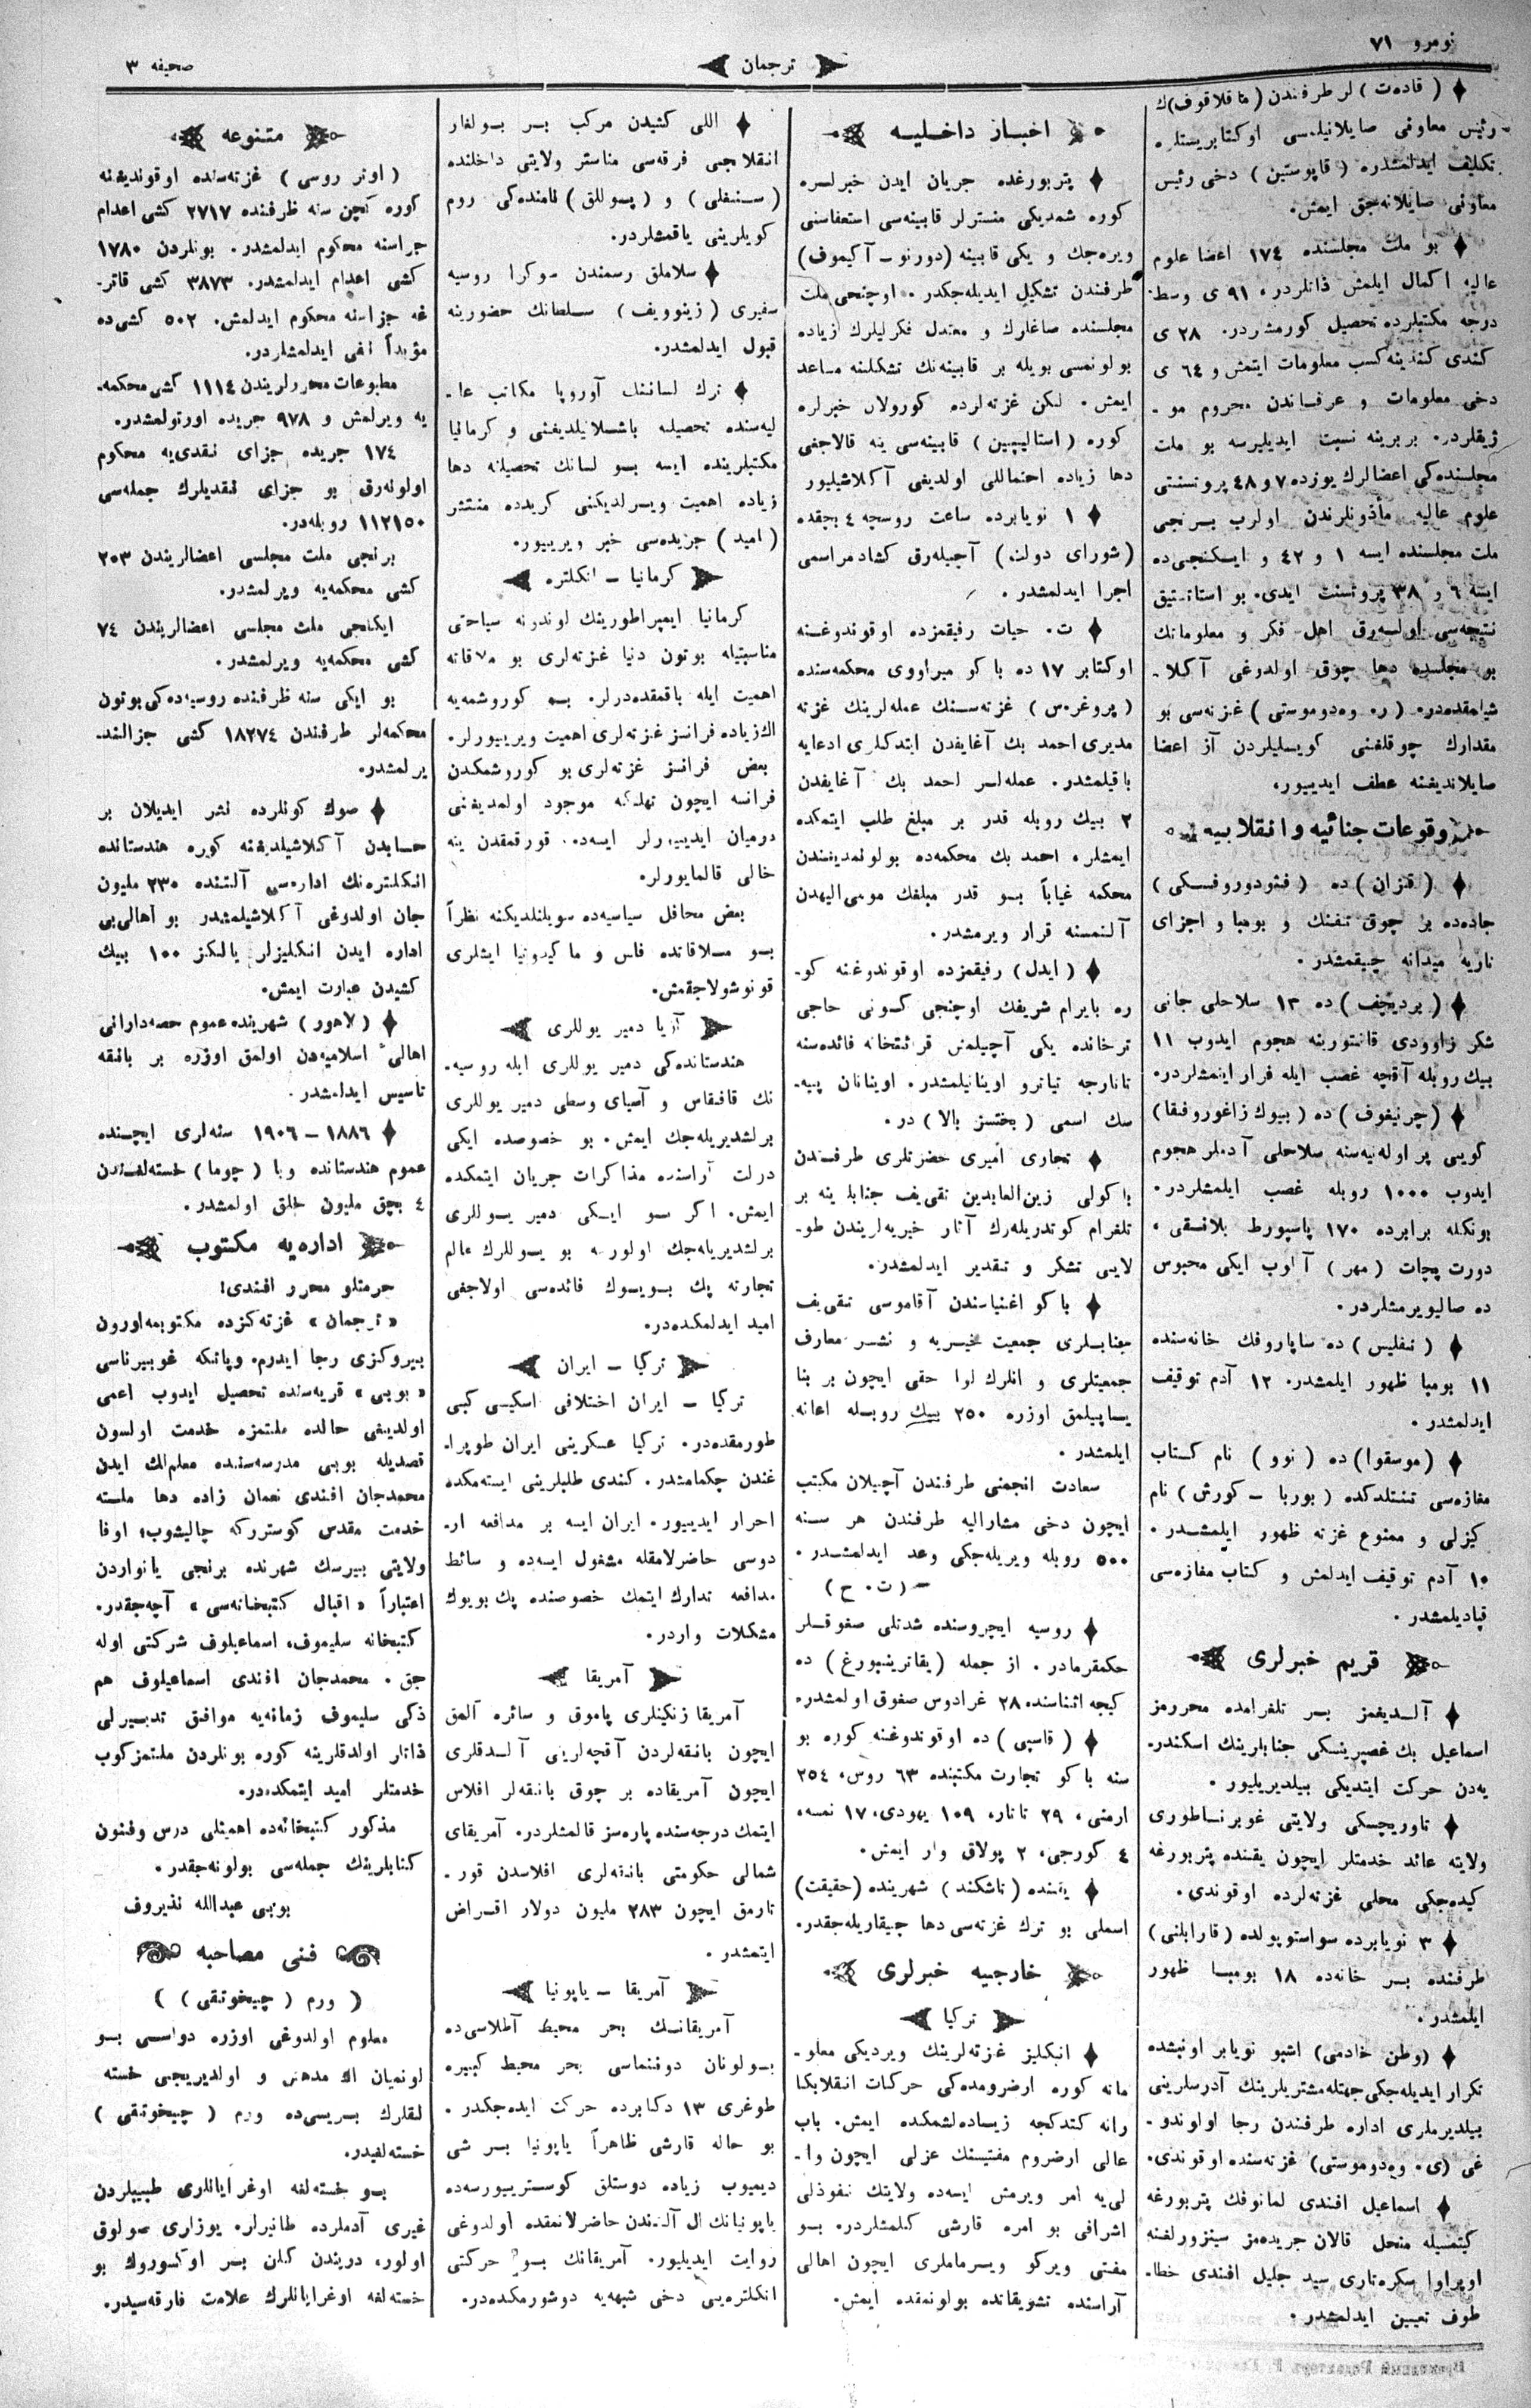 نومرو ۷۱
ترجمان
صحیفه ۳
♦ ( قادەت ) لر طرفندن ( ماقلاقوف)ك
رئیس معاونی صایلانیلمسی اوكتابریستلره
تكلیف ایدلمشدره ( قاپوستین ) دخی رئیس
معاونی صایلانه‌جق ایمش.
♦ بو ملت مجلسنده ۱۷٤ اعضا علوم
عالیه اكمال ایلمش ذاتلردر، ۹۱ ی وسط
درجه مكتبلرده تحصیل كورمشردر. ۲۸ ی
كندی كندینه كسب معلومات ایتمش و ٦٤ ی
دخی معلومات و عرفاندن محروم مو-
ژیقلردر. بربرینه نسبت ایدیلیرسه بو ملت
مجلسنده‌كی اعضالرك یوزده ۷ و ٤۸ پروتسنتی
علوم عالیه مأذونلرندن اولوب برنجی
ملت مجلسنده ایسه ۱ و ٤۲ و ایكنجی‌ده
ایسه ٦ و ۳۸ پروتسنت ایدی. بو استاتستیق
نتیجه‌سی اوله‌رق اهل فكر و معلوماتك
بو مجلسده دها چوق اولدوغی آكلا-
شیلمقده‌در. (ر. وه‌دوموستی) غزته‌سی بو
مقدارك چوقلغنی كویسلیلردن آز اعضا
صایلاندیغنه عطف ایدییور.
وقوعات جنائیه و انقلابیه
♦ ( قزان ) ده ( فئودوروفسكی )
جاده‌ده بر چوق تفنك و بومبا و اجزای
ناریه میدانه چیقمشدر.
♦ ( بردیچف ) ده ۱۳ سلاحلی جانی
شكر زاوودی قانتورینه هجوم ایدوب ۱۱
بیك روبله آقچه غصب ایله فرار ایتمشلردر.
♦ ( چرنیغوف ) ده ( بیوك زاغوروفقا )
كویی پراوله‌نیه‌سنه سلاحلی آدملر هجوم
ایدوب ۱۰۰۰ روبله غصب ایلمشلردر.
بونكله برابرده ۱۷۰ پاسپورط بلانقی،
دورت پچات ( مهر ) آلوب ایكی محبوس
ده صالیویرمشلردر.
♦ ( تفلیس ) ده ساپاروفك خانه‌سنده
۱۱ بومبا ظهور ایلمشدر. ۱۲ آدم توقیف
ایدلمشدر.
♦ ( موسقوا ) ده ( نوو ) نام كتاب
مغازه‌سی تفتلدكده ( بوربا - كورش ) نام
كیزلی و ممنوع غزته ظهور ایلمشدر.
۱۰ آدم توقیف ایدلمش و كتاب مغازه‌سی
قپادیلمشدر.
قریم خبرلری
♦ آلدیغمز بر تلغرامده محررمز
اسماعیل بك غصپرینسكی جنابلرینك اسكندر-
یه‌دن حركت ایتدیكی بیلدیریلیور.
♦ تاوریچسكی ولایتی غوبرناطوری
ولایته عائد خدمتلر ایچون یقینده پتربورغه
كیده‌جكی محلی غزته‌لرده اوقوندی.
♦ ۳ نویابرده سواستوپولده ( قارابلنی )
طرفنده بر خانه‌ده ۱۸ بومبا ظهور
ایلمشدر.
♦ ( وطن خادمی ) اشبو نویابر اونبشده
تكرار ایدیله‌جكی جهتله مشتریلرینك آدرسلرینی
بیلدیرملری اداره طرفندن رجا اولوندو-
غی (ی. وه‌دوموستی) غزته‌سنده اوقوندی.
♦ اسماعیل افندی لمانوفك پتربورغه
كیتمسیله منحل قالان جریده‌مز سینزورلغنه
اوپراوا سكره‌تاری سید جلیل افندی خطا-
طوف تعیین ایدلمشدر.
اخبار داخلیه
♦ پتربورغده جریان ایدن خبرلره
كوره شمدیكی منسترلر قابینه‌سی استعفاسنی
ویره‌جك و یكی قابینه (دورنو - آكیموف)
طرفندن تشكیل ایدیله‌جكدر. اوچنجی ملت
مجلسنده صاغلرك و معتدل فكرلیلرك زیاده
بولونمسی بویله بر قابینه‌نك تشكلنه مساعد
ایمش. لكن غزته‌لرده كورولان خبرلره
كوره ( استالیپین ) قابینه‌سی ینه قالاجغی
دها زیاده احتماللی اولدیغی آكلاشیلیور
♦ ۱ نویابرده ساعت روسجه ٤ بچقده
(شورای دولت) آچیله‌رق كشاد مراسمی
اجرا ایدلمشدر.
♦ ت. حیات رفیقمزده اوقوندوغنه
اوكتابر ۱۷ ده باكو میراووی محكمه‌سنده
( پروغره‌س ) غزته‌سنك عمله‌لرینك غزته
مدیری احمد بك آغایفدن ایتدكلری ادعایه
باقیلمشدر. عمله‌لر احمد بك آغایفدن
۲ بیك روبله قدر بر مبلغ طلب ایتمكده
ایمشلر. احمد بك محكمه‌ده بولونمدیغندن
محكمه غیاباً بو قدر مبلغك مومی‌الیهدن
آلنمسنه قرار ویرمشدر.
♦ ( ایدل ) رفیقمزده اوقوندوغنه كو-
ره بایرام شریفك اوچنجی كونی حاجی
ترخانده یكی آچیلمش قرائتخانه فائده‌سنه
تاتارجه تیاترو اوینانیلمشدر. اوینانان پیه-
سك اسمی ( بختسز بالا ) در.
♦ بخاری امیری حضرتلری طرفندن
باكولی زین‌العابدین تقی‌یف جنابلرینه بر
تلغرام كوندریله‌رك آثار خیریه‌لریندن طو-
لایی تشكر و تقدیر ایدلمشدر.
♦ باكو اغنیاسندن آقاموسی نقی‌یف
جنابلری جمعیت خیریه و نشر معارف
جمعیتلری و انلرك لوا حقی ایچون بر بنا
یاپیلمق اوزره ۲۵۰ بیك روبله اعانه
ایلمشدر.
سعادت انجمنی طرفندن آچیلان مكتب
ایچون دخی مشارالیه طرفندن هر سنه
۵۰۰ روبله ویریله‌جكی وعد ایدلمشدر.
— ( ت. ح )
♦ روسیه ایچروسنده شدتلی صغوقلر
حكمفرمادر. از جمله (یقاترینبورغ) ده
كیجه اثناسنده ۲۸ غرادوس صغوق اولمشدر.
♦ ( قاسپی ) ده اوقوندوغنه كوره بو
سنه باكو تجارت مكتبنده ٦۳ روس، ۲۵٤
ارمنی، ۲۹ تاتار، ۱۰۹ یهودی، ۱۷ نمسه،
٤ كورجی، ۲ پولاق وار ایمش.
♦ یقینده (تاشكند) شهرینده (حقیقت)
اسملی بو ترك غزته‌سی دها چیقاریله‌جقدر.
خارجیه خبرلری
تركیا
♦ انكلیز غزته‌لرینك ویردیكی معلو-
ماته كوره ارضرومده‌كی حركات انقلابكا
رانه كتدكجه زیاده‌لشمكده ایمش. باب
عالی ارضروم مفتیسنك عزلی ایچون وا-
لی‌یه امر ویرمش ایسه‌ده ولایتك نفوذلی
اشرافی بو امره قارشی كلمشلردر. بو
مفتی ویركو ویرماملری ایچون اهالی
آراسنده تشویقاتده بولونمقده ایمش.
♦ اللی كشیدن مركب بر بولغار
انقلابجی فرقه‌سی مناستر ولایتی داخلنده
(سنفلی) و (پوللق) نامنده‌كی روم
كویلرینی یاقمشلردر.
♦ سلاملق رسمندن صوكرا روسیه
سفیری (زینوویف) سلطانك حضورینه
قبول ایدلمشدر.
♦ ترك لساننك آوروپا مكاتب عا-
لیه‌سنده تحصیله باشلانیلدیغنی و كرمانیا
مكتبلرینده ایسه بو لسانك تحصیلنه دها
زیاده اهمیت ویرلدیكنی كریدده منتشر
( امید ) جریده‌سی خبر ویرییور.
كرمانیا - انكلتره
كرمانیا ایمپراطورینك لوندرنه سیاحتی
مناسبتیله بوتون دنیا غزته‌لری بو ملاقاته
اهمیت ایله باقمقده‌درلر. بو كوروشمه‌یه
اك زیاده فرانسز غزته‌لری اهمیت ویرییورلر.
بعض فرانسز غزته‌لری بو كوروشمكدن
فرانسه ایچون تهلكه موجود اولمدیغنی
درمیان ایدییورلر ایسه‌ده، قورقمقدن ینه
خالی قالمایورلر.
بعض محافل سیاسیه‌ده سویلنلدیكنه نظراً
بو ملاقاتده فاس و ماكیدونیا ایشلری
قونوشولاجقمش.
آزیا دمیر یوللری
هندستانده‌كی دمیر یوللری ایله روسیه-
نك قافقاس و آسیای وسطی دمیر یوللری
برلشدیریله‌جك ایمش. بو خصوصده ایكی
دولت آراسنده مذاكرات جریان ایتمكده
ایمش. اكر بو ایكی دمیر یوللری
برلشدیریله‌جك اولورسه بو یوللرك عالم
تجارته پك بویوك فائده‌سی اولاجغی
امید ایدلمكده‌در.
تركیا - ایران
تركیا - ایران اختلافی اسكیسی كبی
طورمقده‌در. تركیا عسكرینی ایران طوپرا-
غندن چكمامشدر. كندی طلبلرینی ایسته‌مكده
احرار ایدییور. ایران ایسه بر مدافعه ار-
دوسی حاضرلامقله مشغول ایسه‌ده وسائط
مدافعه تدارك ایتمك خصوصنده پك بویوك
مشكلات واردر.
آمریقا
آمریقا زنكینلری پاموق و سائره آلمق
ایچون بانقه‌لردن آقچه‌لرینی آلدقلری
ایچون آمریقاده بر چوق بانقه‌لر افلاس
ایتمك درجه‌سنده پاره‌سز قالمشلردر. آمریقای
شمالی حكومتی بانقه‌لری افلاسدن قور-
تارمق ایچون ۲۸۳ ملیون دولار اقراض
ایتمشدر.
آمریقا - یاپونیا
آمریقانك بحر محیط آطلاسی‌ده
بولونان دوننماسی بحر محیط كبیره
طوغری ۱۳ دكابرده حركت ایده‌جكدر.
بو حاله قارشی ظاهراً یاپونیا بر شی
دیمیوب زیاده دوستلق كوسترییورسه‌ده
یاپونیانك ال آلتندن حاضرلانمقده اولدوغی
روایت ایدیلیور. آمریقانك بو حركتی
انكلتره‌یی دخی شبهه‌یه دوشورمكده‌در.
متنوعه
( اوتر روسی ) غزته‌سنده اوقوندیغنه
كوره كچن سنه ظرفنده ۲۷۱۷ كشی اعدام
جزاسنه محكوم ایدلمشدر. بونلردن ۱۷۸۰
كشی اعدام ایدلمشدر. ۳۸۷۳ كشی قاتر-
غه جزاسنه محكوم ایدلمش. ۵۰۲ كشی ده
مؤبداً نفی ایدلمشلردر.
مطبوعات محررلریندن ۱۱۱٤ كشی محكمه-
یه ویرلمش و ۹۷۸ جریده اورتولمشدر.
۱۷٤ جریده جزای نقدی‌یه محكوم
اولونه‌رق بو جزای نقدیلرك جمله‌سی
۱۱۲۱۵۰ روبله‌در.
برنجی ملت مجلسی اعضالریندن ۲۵۳
كشی محكمه‌یه ویرلمشدر.
ایكنجی ملت مجلسی اعضالریندن ۷٤
كشی محكمه‌یه ویرلمشدر.
بو ایكی سنه ظرفنده روسیه‌ده‌كی بوتون
محكمه‌لر طرفندن ۱۸۲۷٤ كشی جزالند-
یرلمشدر.
♦ صوك كونلرده نشر ایدیلان بر
حسابدن آكلاشیلدیغنه كوره هندستانده
انكلتره‌نك اداره‌سی آلتنده ۲۳۰ ملیون
جان اولدوغی آكلاشیلمشدر بو اهالی‌یی
اداره ایدن انكلیزلر یالكز ۱۰۰ بیك
كشیدن عبارت ایمش.
♦ ( لاهور ) شهرینده عموم حصه‌دارانی
اهالی اسلامیه‌دن اولمق اوزره بر بانقه
تاسیس ایدلمشدر.
♦ ۱۸۸٦ - ۱۹۰٦ سنه‌لری ایچنده
عموم هندستانده وبا ( چوما ) خسته‌لغندن
٤ بچق ملیون خلق اولمشدر.
اداره‌یه مكتوب
حرمتلو محرر افندی!
« ترجمان » غزته‌كزده مكتوبمه اورون
بیروكزی رجا ایدرم. ویاتكه غوبیرناسی
« بوبی » قریه‌سنده تحصیل ایدوب اعمی
اولدیغی حالده ملتمزه خدمت اولسون
قصدیله بوبی مدرسه‌سنده معلم‌لك ایدن
محمدجان افندی نعمان زاده دها ملته
خدمت مقدس كوسترركه چالیشوب؛ اوفا
ولایتی بیرسك شهرنده برنجی یانواردن
اعتباراً « اقبال كتبخانه‌سی » آچه‌جقدر.
كتبخانه سلیموف، اسماعیلوف شركتی اوله
جق. محمدجان افندی اسماعیلوف هم
ذكی سلیموف زمانه‌یه موافق تدبیرلی
ذاتلر اولدقلرینه كوره بونلردن ملتمز كوب
خدمتلر امید ایتمكده‌در.
مذكور كتبخانه‌ده اهمیتلی درس وفنون
كتابلرینك جمله‌سی بولونه‌جقدر.
بوبی عبدالله نذیروف
فنی مصاحبه
( ورم ( چیخوتقی ) )
معلوم اولدوغی اوزره دواسی بو
لونمیان اك مدهش و اولدیریجی خسته
لقلرك بریسی‌ده ورم ( چیخوتقی )
خسته‌لغیدر.
بو خسته‌لغه اوغرایانلری طبیبلردن
غیری آدملرده طانیرلر. یوزلری صولوق
اولور، دریندن كلن بر اوكسوروك بو
خسته‌لغه اوغرایانلرك علامت فارقه‌سیدر.